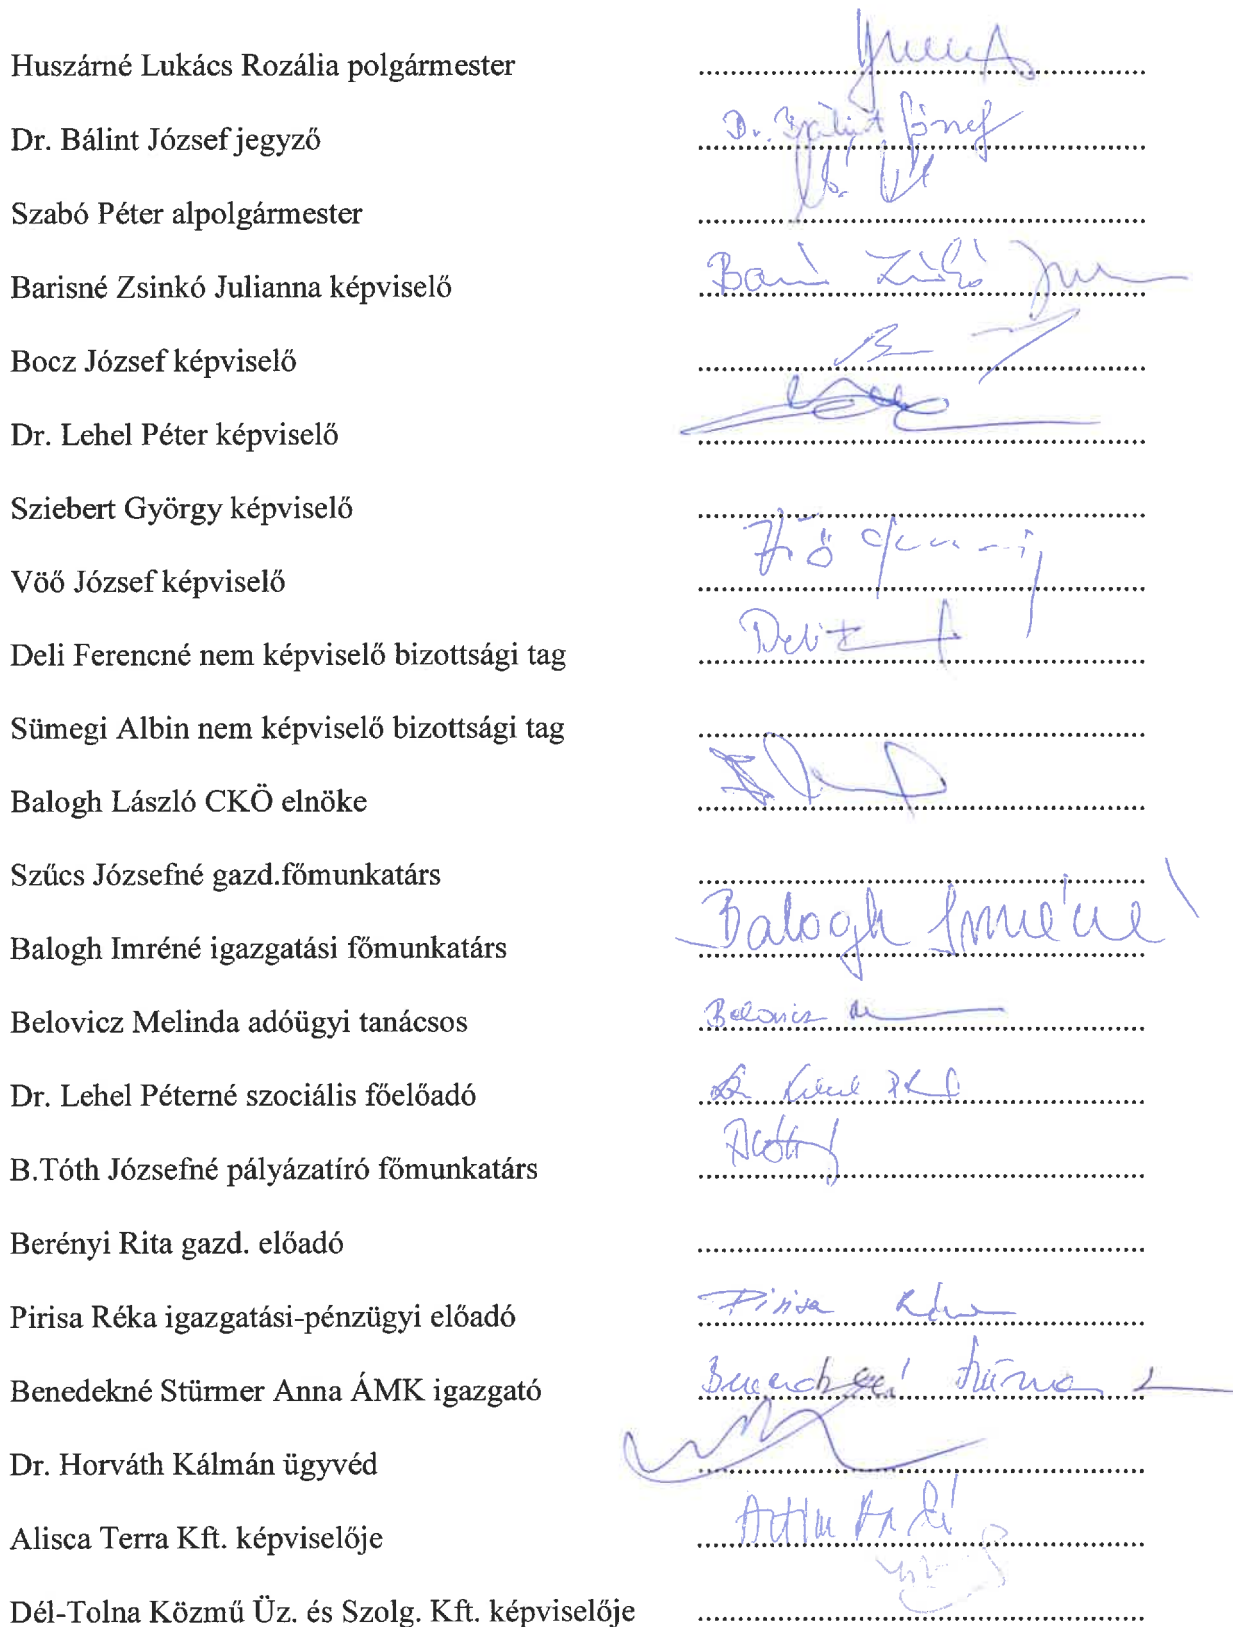 Huszárné Lukács Rozália polgármester
Dr. Bálint József jegyző Dr. Bálint József
Szabó Péter alpolgármester
Barisné Zsinkó Julianna képviselő
Bocz József képviselő
Dr. Lehel Péter képviselő
Sziebert György képviselő
Vöő József képviselő
Deli Ferencné nem képviselő bizottsági tag
Sümegi Albin nem képviselő bizottsági tag
Balogh László CKÖ elnöke
Szűcs Józsefné gazd.főmunkatárs
Balogh Imréné igazgatási főmunkatárs Balogh Imréné
Belovicz Melinda adóügyi tanácsos Belovicz
Dr. Lehel Péterné szociális főelőadó
B.Tóth Józsefné pályázatíró főmunkatárs
Berényi Rita gazd. előadó
Pirisa Réka igazgatási-pénzügyi előadó Pirisa Réka
Benedekné Stürmer Anna ÁMK igazgató
Dr. Horváth Kálmán ügyvéd
Alisca Terra Kft. képviselője
Dél-Tolna Közmű Üz. és Szolg. Kft. képviselője